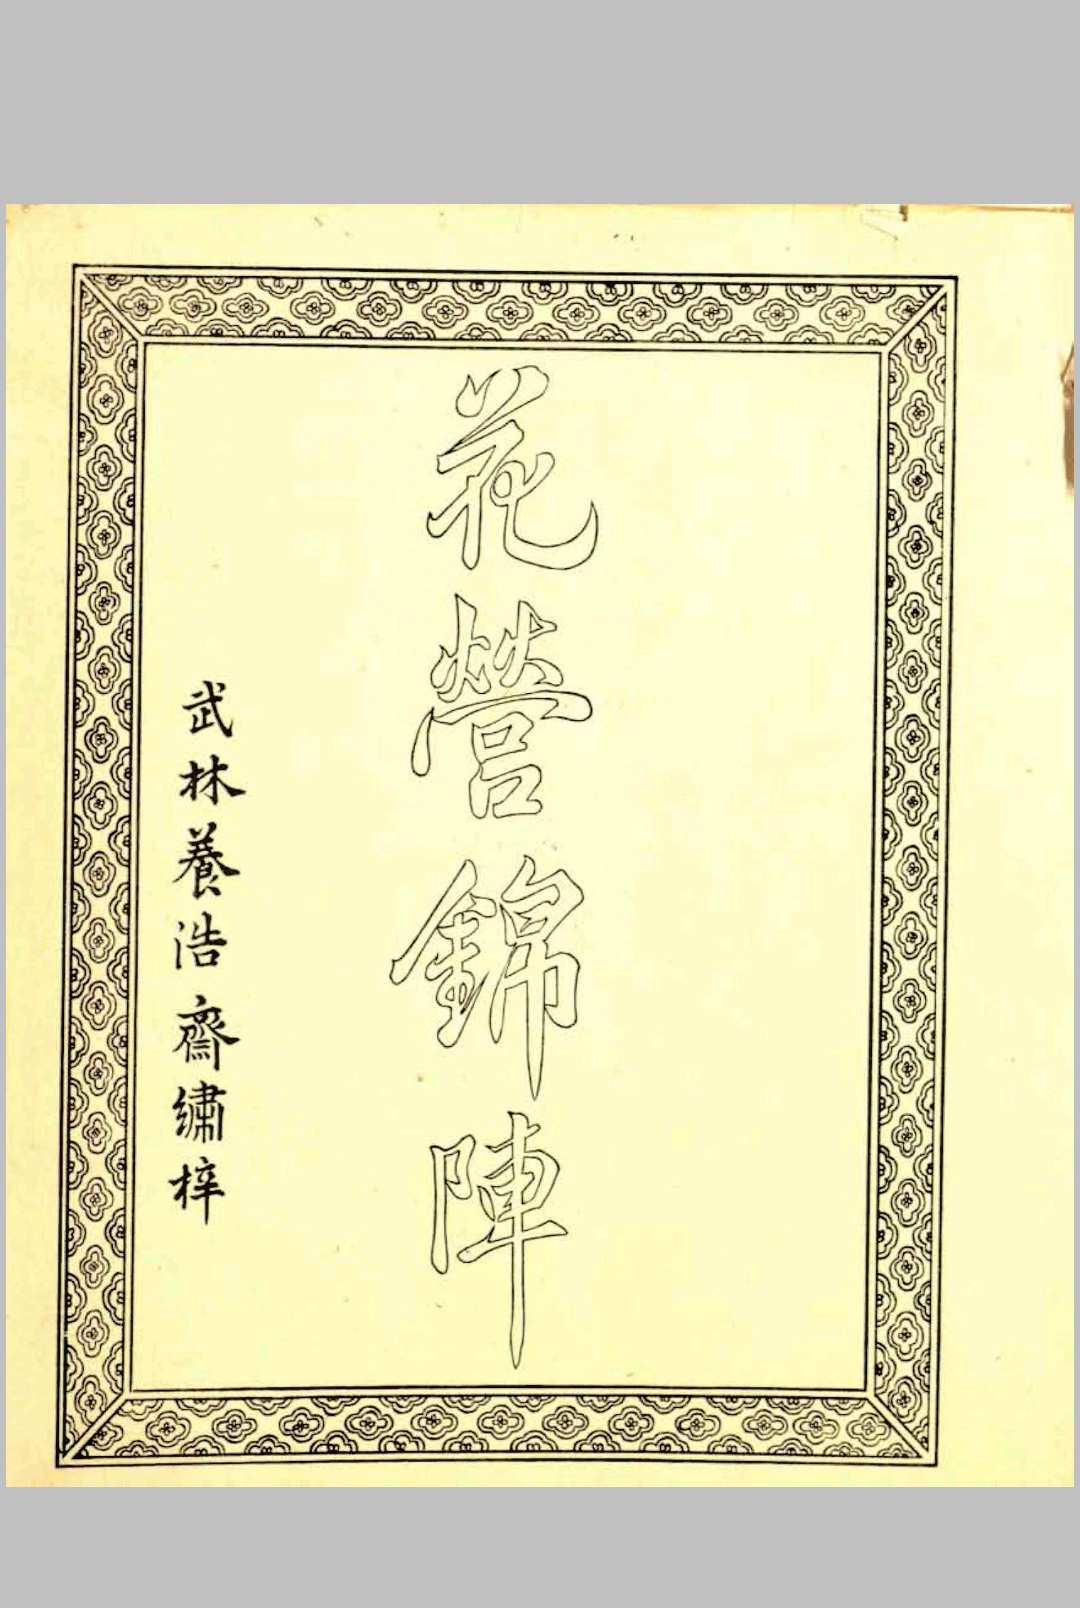 花營錦陣
武林養浩齋繡梓